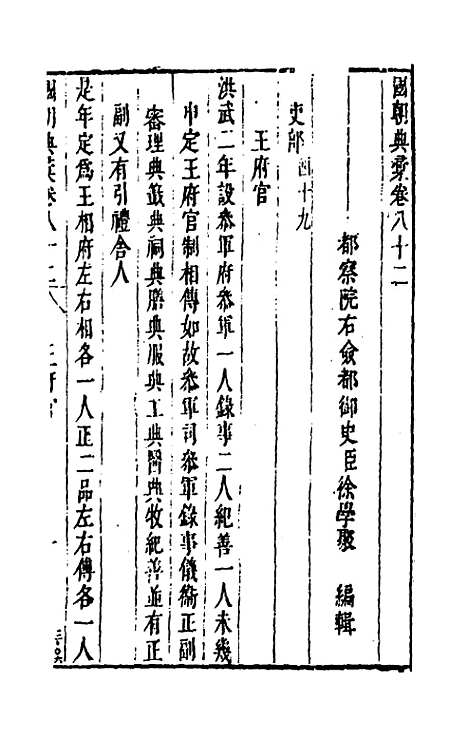 國朝典彙卷八十二
都察院右僉都御史臣徐學聚 編輯
吏部四十九
王府官
洪武二年設叅軍府叅軍一人錄事二人紀善一人未幾
申定王府官制相傅如故叅軍司叅軍錄事儀衛正副
審理典籤典祠典膳典服典工典醫典牧紀善並有正
副又有引禮舍人
是年定爲王相府左右相各一人正二品左右傅各一人
國朝典彙卷八十二 王府官 一